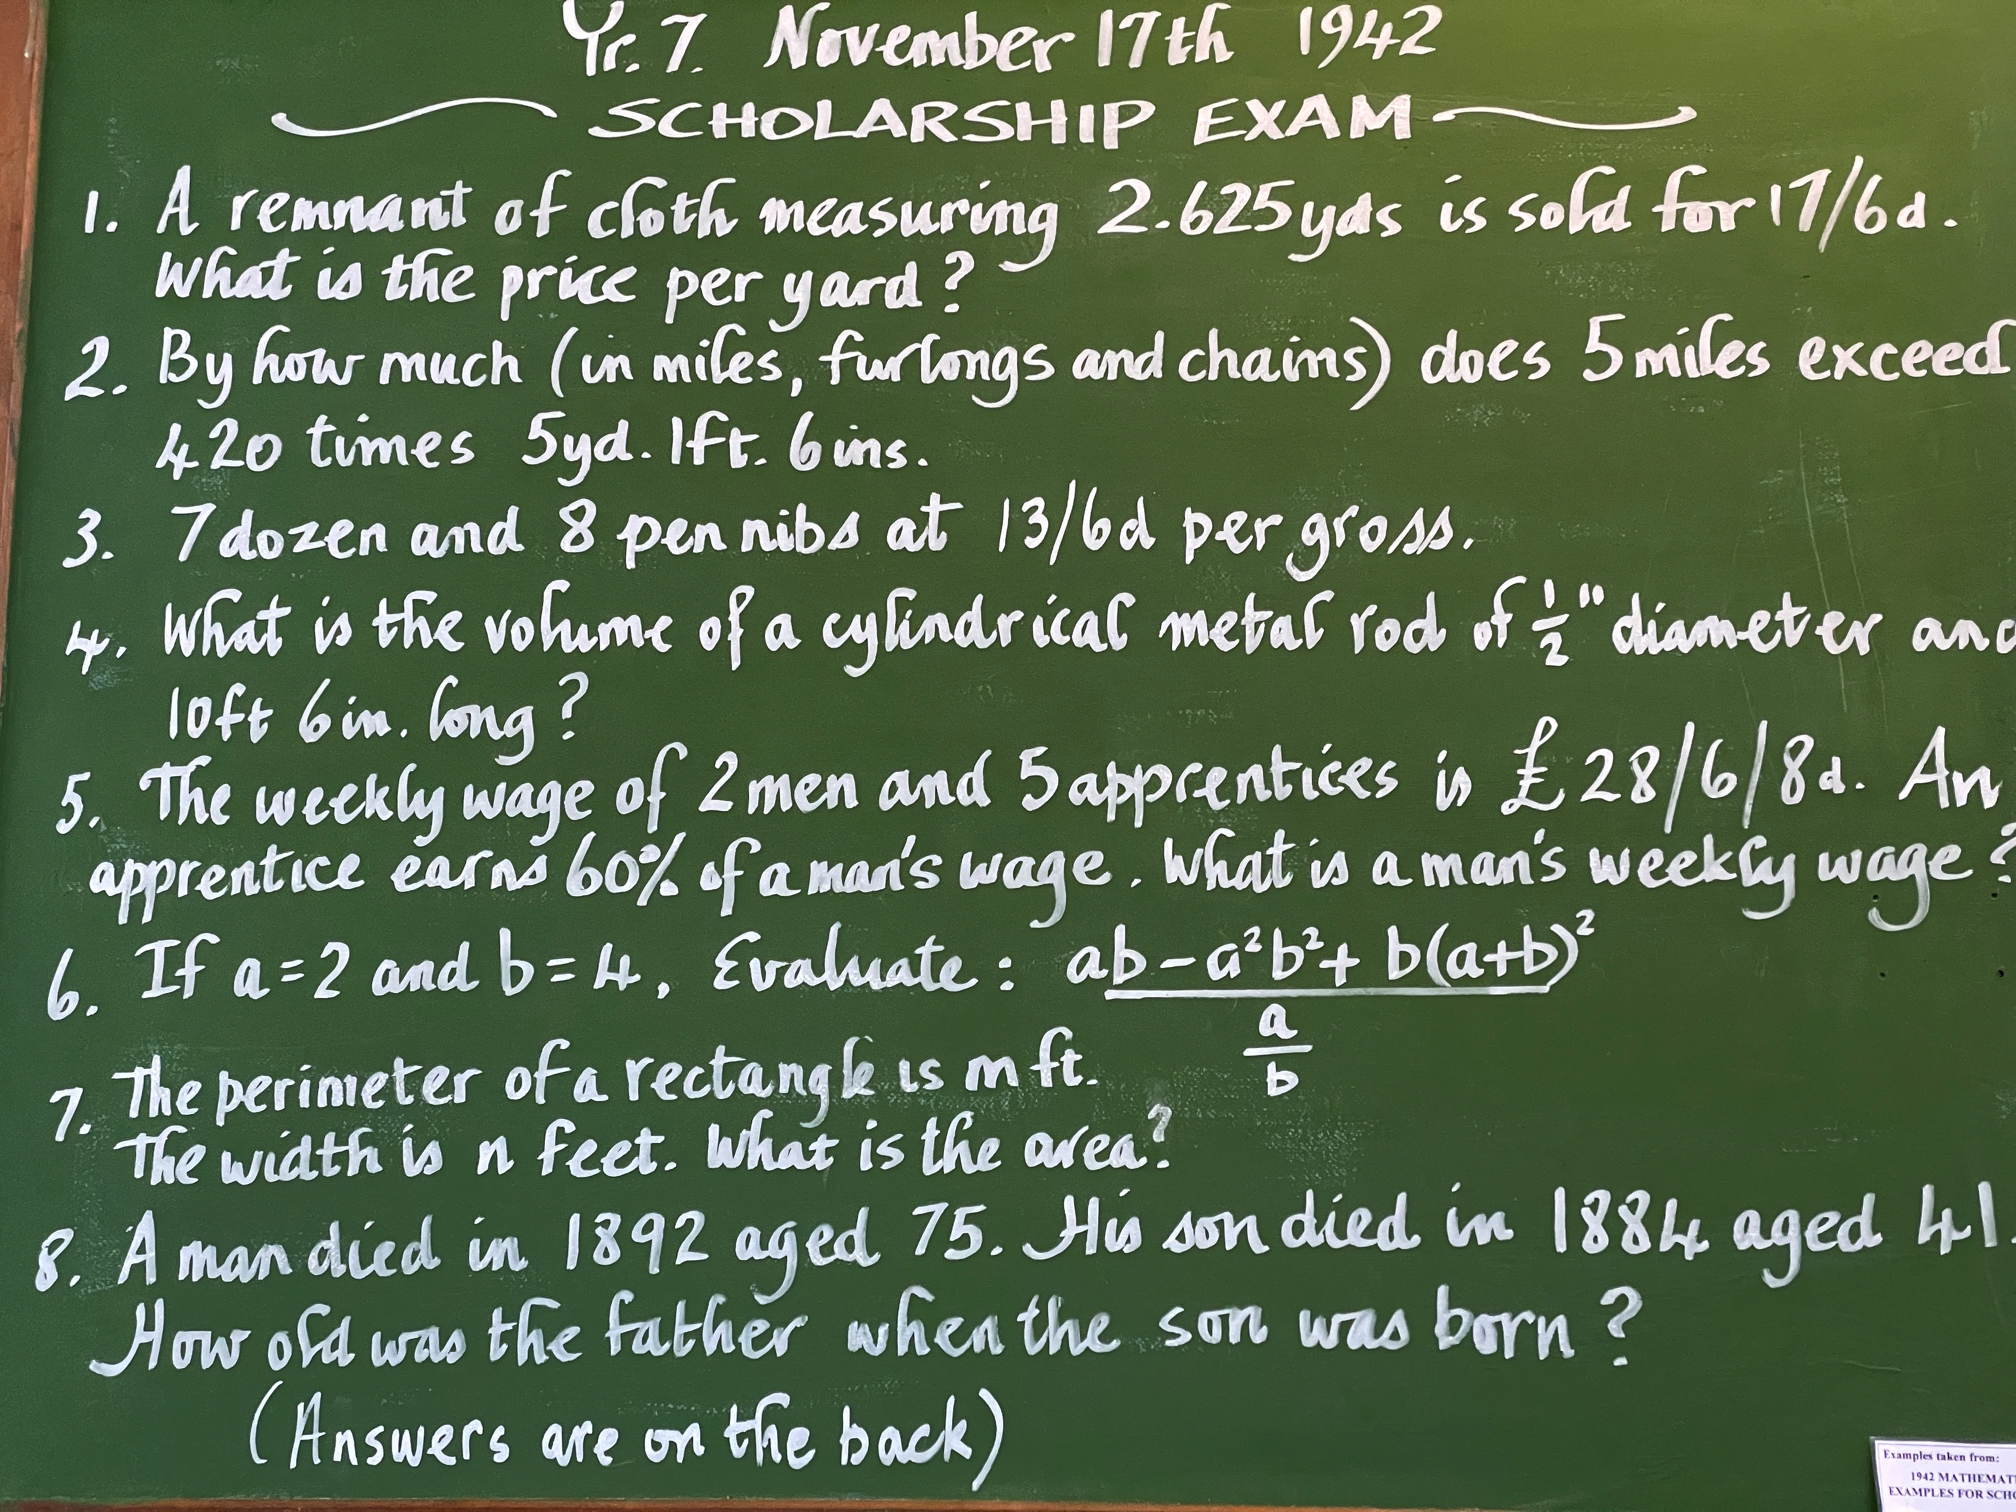 Yr. 7. November 17th 1942
SCHOLARSHIP EXAM
1. A remnant of cloth measuring 2.625yds is sold for 17/6d.
What is the price per yard?
2. By how much (in miles, furlongs and chains) does 5 miles exceed
420 times 5yd. 1ft. 6ins.
3. 7 dozen and 8 pen nibs at 13/6d per gross.
4. What is the volume of a cylindrical metal rod of ½" diameter and
10ft 6in. long?
5. The weekly wage of 2 men and 5 apprentices is £28/6/8d. An
apprentice earns 60% of a man's wage. What is a man's weekly wage?
6. If a=2 and b=4, Evaluate: ab-a²b²+b(a+b)²
a
b
7. The perimeter of a rectangle is m ft.
The width is n feet. What is the area?
8. A man died in 1892 aged 75. His son died in 1884 aged 41.
How old was the father when the son was born?
(Answers are on the back)
Examples taken from:
1942 MATHEMAT
EXAMPLES FOR SCHO